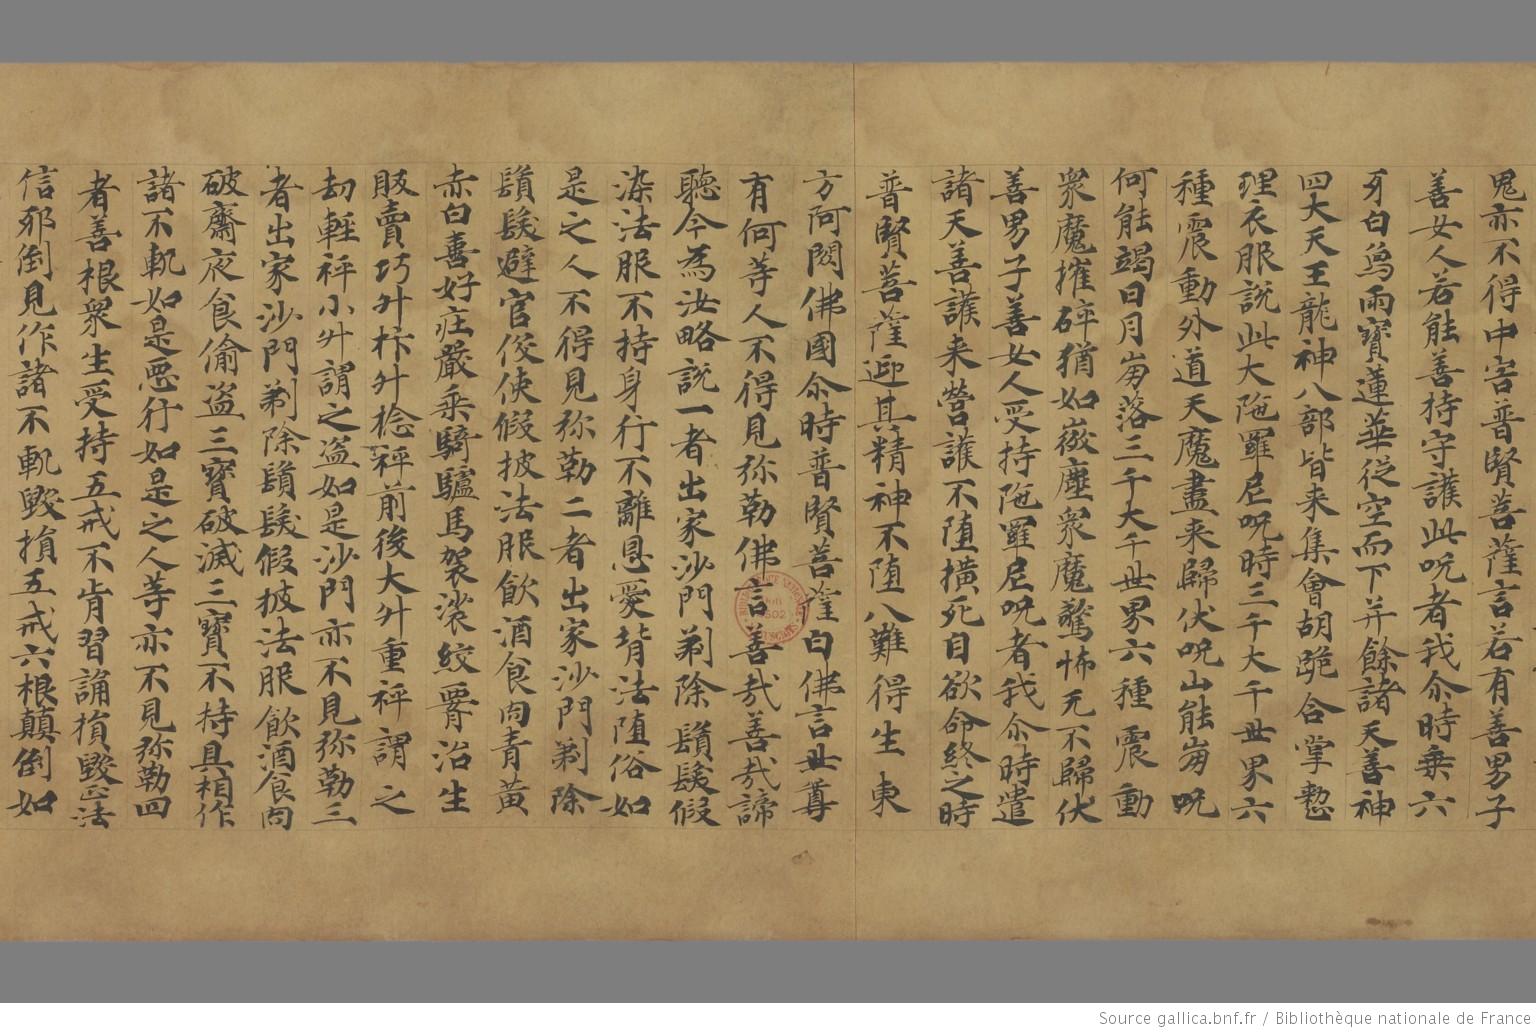 鬼亦不得中害普賢菩薩言若有善男子
善女人若能善持守護此呪者我尒時乗六
牙白烏雨寶蓮華従空而下并餘諸天善神
四大天王龍神八部皆来集會胡跪合掌慗
理衣服説此大陁羅尼呪時三千大千世界六
種震動外道天魔盡来歸伏呪山能崩呪
何能竭日月崩落三千大千世界六種震動
衆魔摧碎猶如嶶塵衆魔驚怖无不歸伏
善男子善女人受持陁羅尼呪者我尒時遣
諸天善護来營護不堕横死自欲命終之時
普賢菩薩迎其精神不堕八難得生東
方阿閦佛國尒時普賢菩薩白佛言世尊
有何等人不得見弥勒佛言善㢤善㢤諦
聽今為汝略説一者出家沙門剃除鬚髮假
染法服不持身行不離恩愛背法堕俗如
是之人不得見弥勒二者出家沙門剃除
鬚髮避官伇使假披法服飲酒食肉青黄
赤白喜好庄嚴乘騎驢馬袈裟絞𦝫治生
販賣巧升枓升捻秤前後大升重秤謂之
劫輕秤小升謂之盗如是沙門亦不見弥勒三
者出家沙門剃除鬚髮假披法服飲酒食肉
破齋夜食偷盗三寶破滅三寶不持具相作
諸不軌如是惡行如是之人等亦不見弥勒四
者善根衆生受持五戒不肯習誦損毀正法
信邪倒見作諸不軌毀損五戒六根顛倒如
Source gallica.bnf.fr / Bibliothèque nationale de France